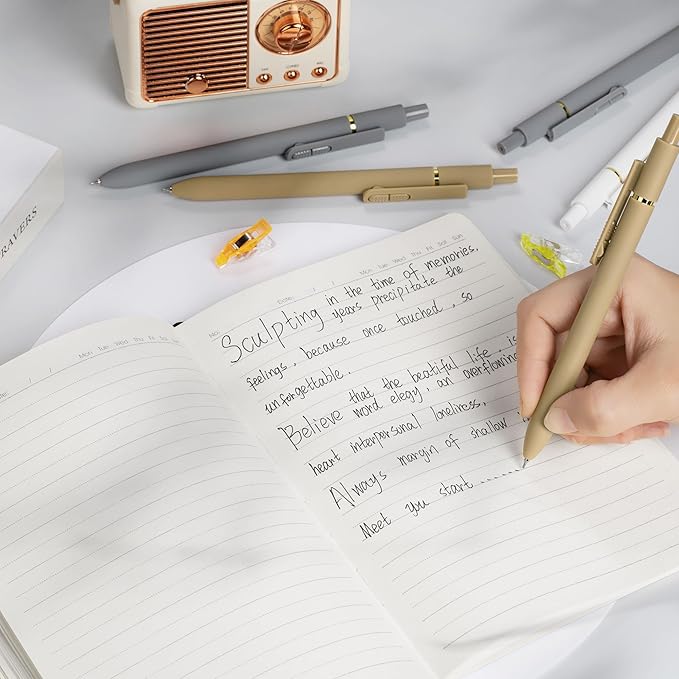 RAVERS
Date: / / Mon Tue Wed Thu Fri Sat Sun
No Date: / / Mon Tue Wed Thu Fri Sat Sun
Sculpting in the time of memories,
years precipitate the
feelings, because once touched, so
unforgettable.
Believe that the beatiful life is
word elegy, an overflowing
heart interpersonal loneliness,
Always margin of shallow
Meet you start ......